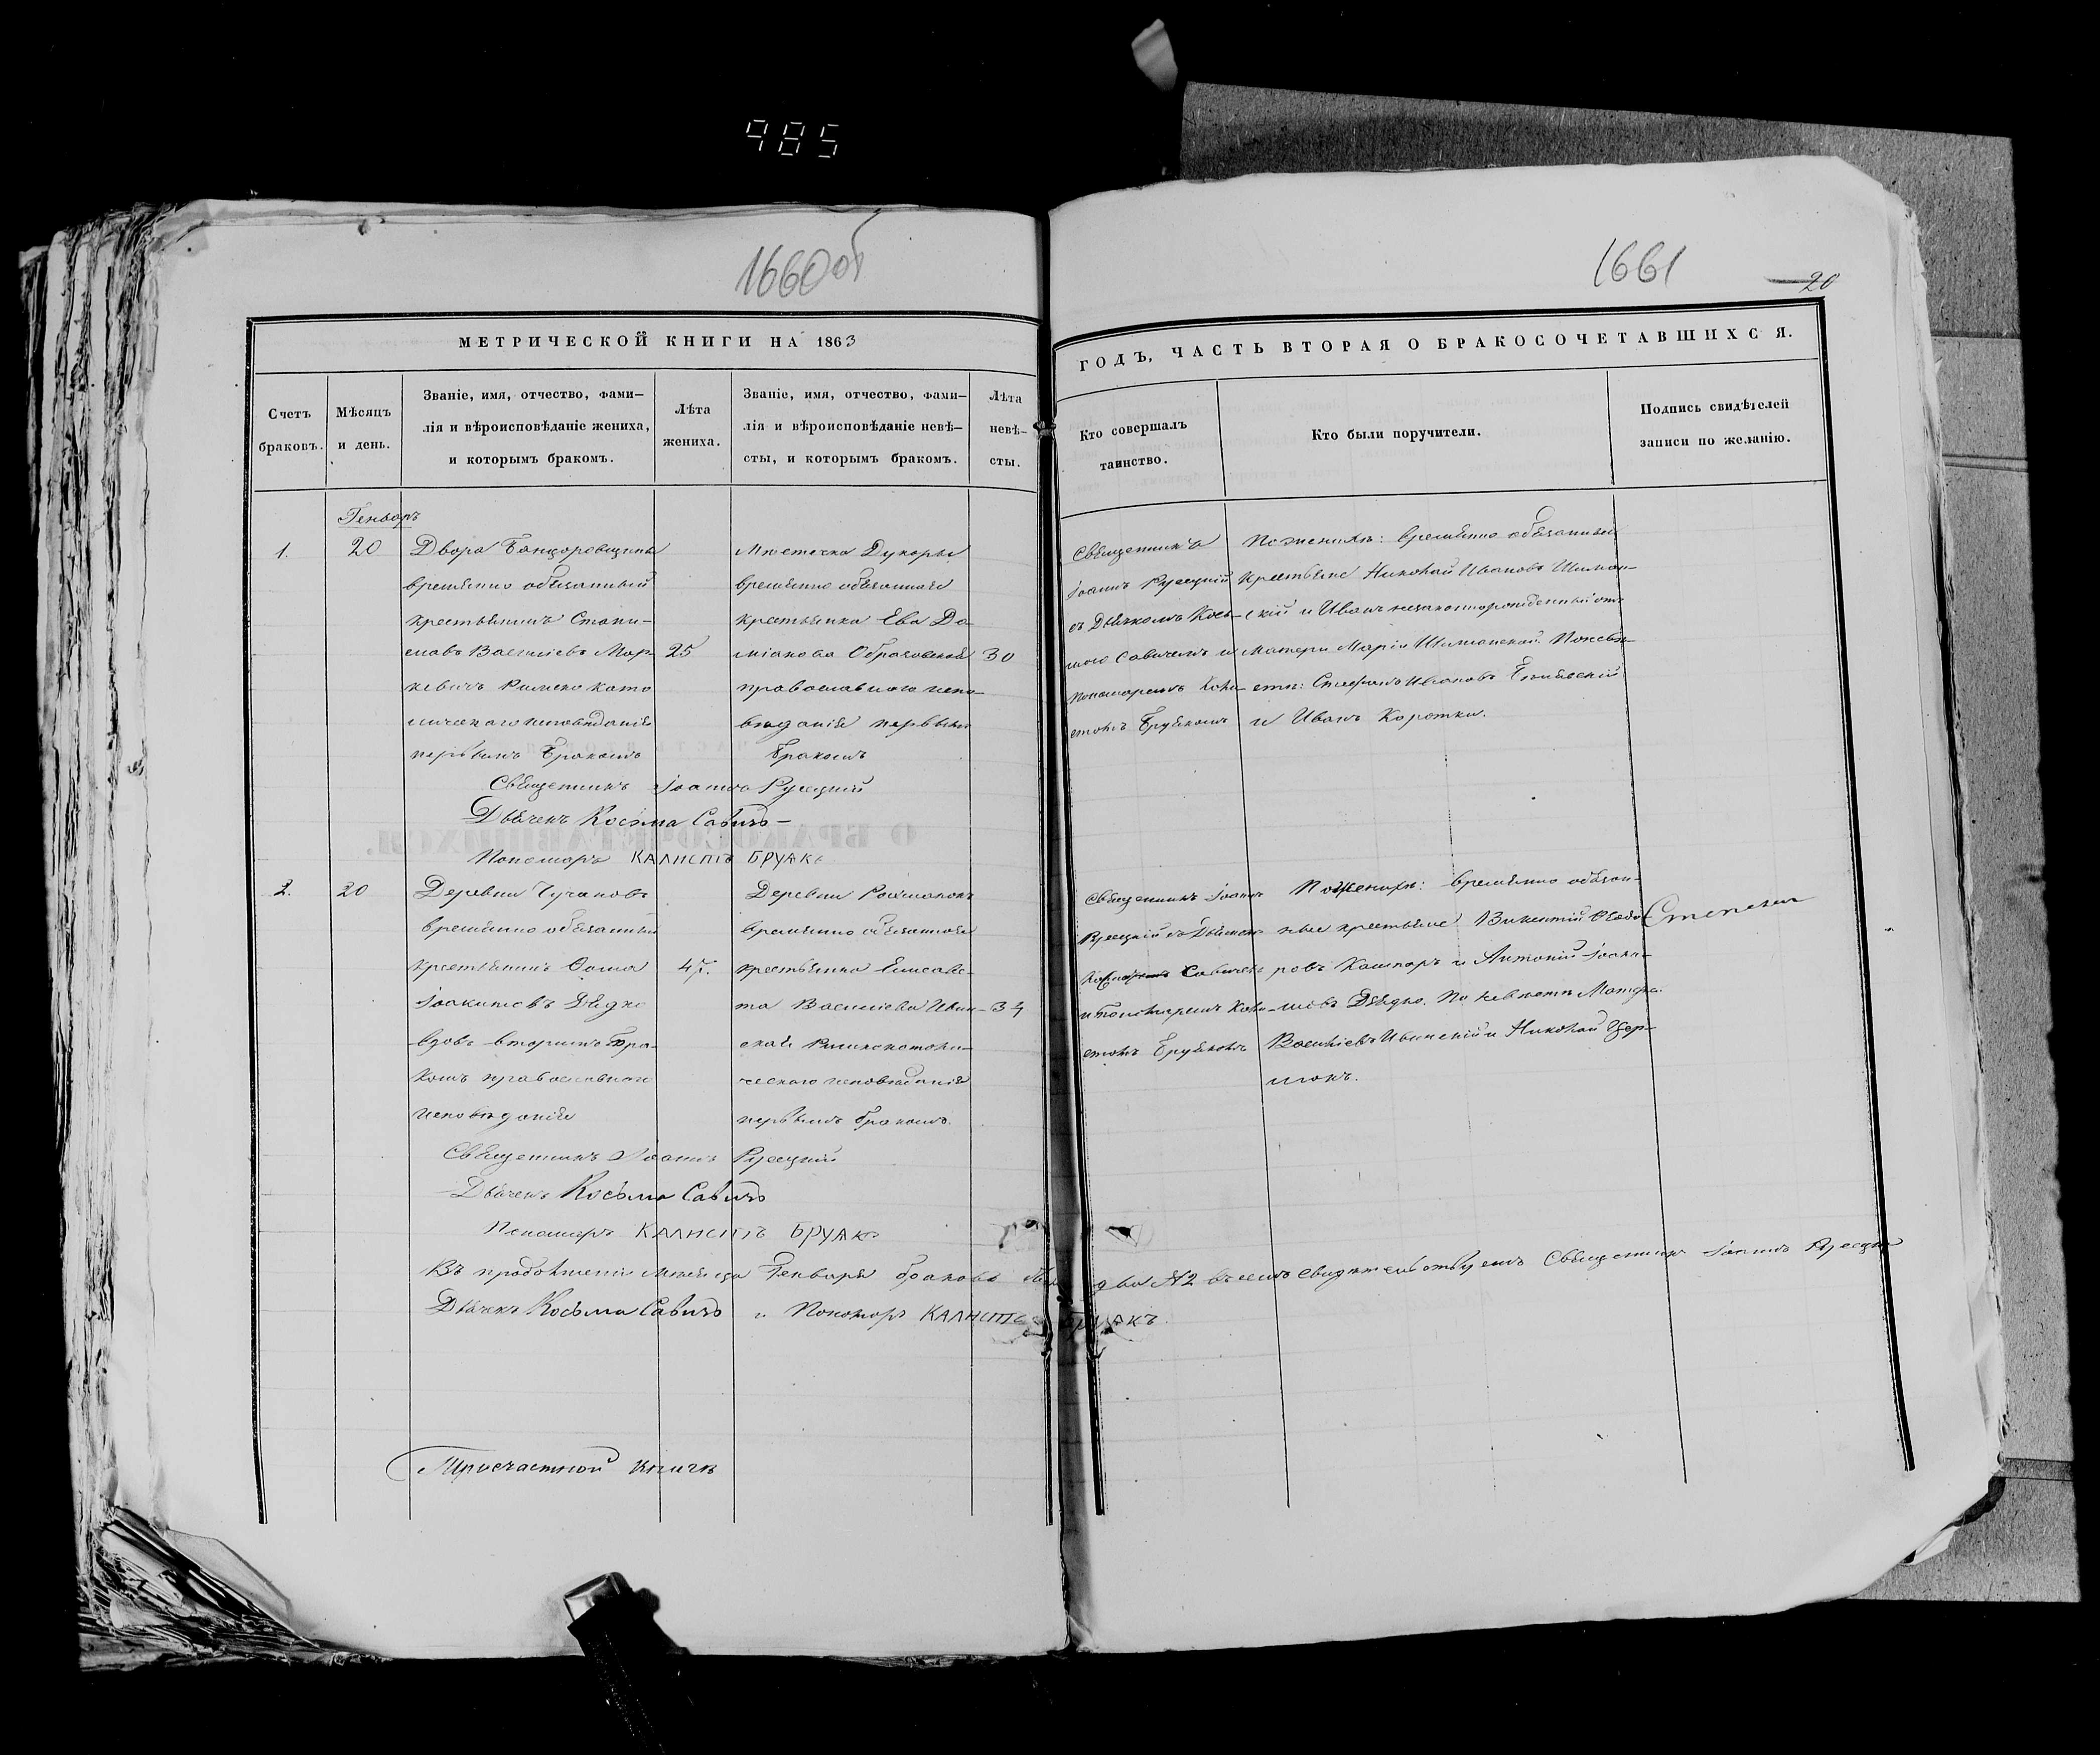 985
1660об
1661
20
МЕТРИЧЕСКОЙ КНИГИ НА 1863
ГОДЪ, ЧАСТЬ ВТОРАЯ О БРАКОСОЧЕТАВШИХСЯ.
Счетъ
браковъ.
Мѣсяцъ
и день.
Званіе, имя, отчество, фами–
лія и вѣроисповѣданіе жениха,
и которымъ бракомъ.
Лѣта
жениха.
Званіе, имя, отчество, фами–
лія и вѣроисповѣданіе невѣ–
сты, и которымъ бракомъ.
Лѣта
невѣ–
сты.
Кто совершалъ
таинство.
Кто были поручители.
Подпись свидѣтелей
записи по желанію.
Генваръ
1.
20
Двора Банцоровщины
временно обязанный
крестьянинъ Стани-
славъ Василіевъ Мар-
кевичъ Римско като
лическаго исповѣданія
первымъ бракомъ
25
Мѣстечка Дукоры
временно обязанная
крестьянка Ева Да
міанова Образовская
православнаго испо-
вѣданія первымъ
бракомъ
30
Священникъ
Іоаннъ Русецкій
съ Дьячкомъ Кось-
мою Савичемъ и
пономаремъ Кали-
стомъ Бруякомъ
По женихѣ: временно обязанный
крестьяне Николай Ивановъ Шиман-
скій и Иванъ незаконнорожденный отъ
матери Маріи Шиманской. По невѣ-
стѣ: Стефанъ Ивановъ
и Иванъ Коротки.
Священникъ Іоаннъ Русецкій
Дьячекъ Косьма Савичъ –
Пономаръ КАЛИСТЪ БРУЯКЪ
2.
20
Деревни
временно обязанный
крестьянинъ Ѳома
Іоакимовъ Дѣдко
вдовъ вторымъ бра-
комъ православнаго
исповѣданія
47.
Деревни
временно обязанная
крестьянка Елисаве-
та Василіева Ивин-
ская Римскокатоли-
ческаго исповѣданія
первымъ бракомъ.
34
Священникъ Іоаннъ
Русецкій съ Дьячкомъ
Савичемъ
и Пономаремъ Кали-
стомъ Бруякомъ
По женихѣ: временно обязан-
ные крестьяне Викентій Ѳедо
ровъ Кашпаръ и Антоній Іоаки-
мовъ Дѣдко. По невѣстѣ Матфей
Василіевъ Ивинскій и Николай Цер-
Священникъ Іоаннъ Русецкій
Дьячекъ Косьма Савичъ
Пономаръ КАЛИСТЪ БРУЯКЪ
Въ продолженіи мѣсяца Генваря браковъ два № 2 въ чемъ свидѣтельствуемъ Священникъ Іоаннъ Русецкій
Дьячекъ Косьма Савичъ и Пономаръ КАЛИСТЪ БРУЯКЪ.